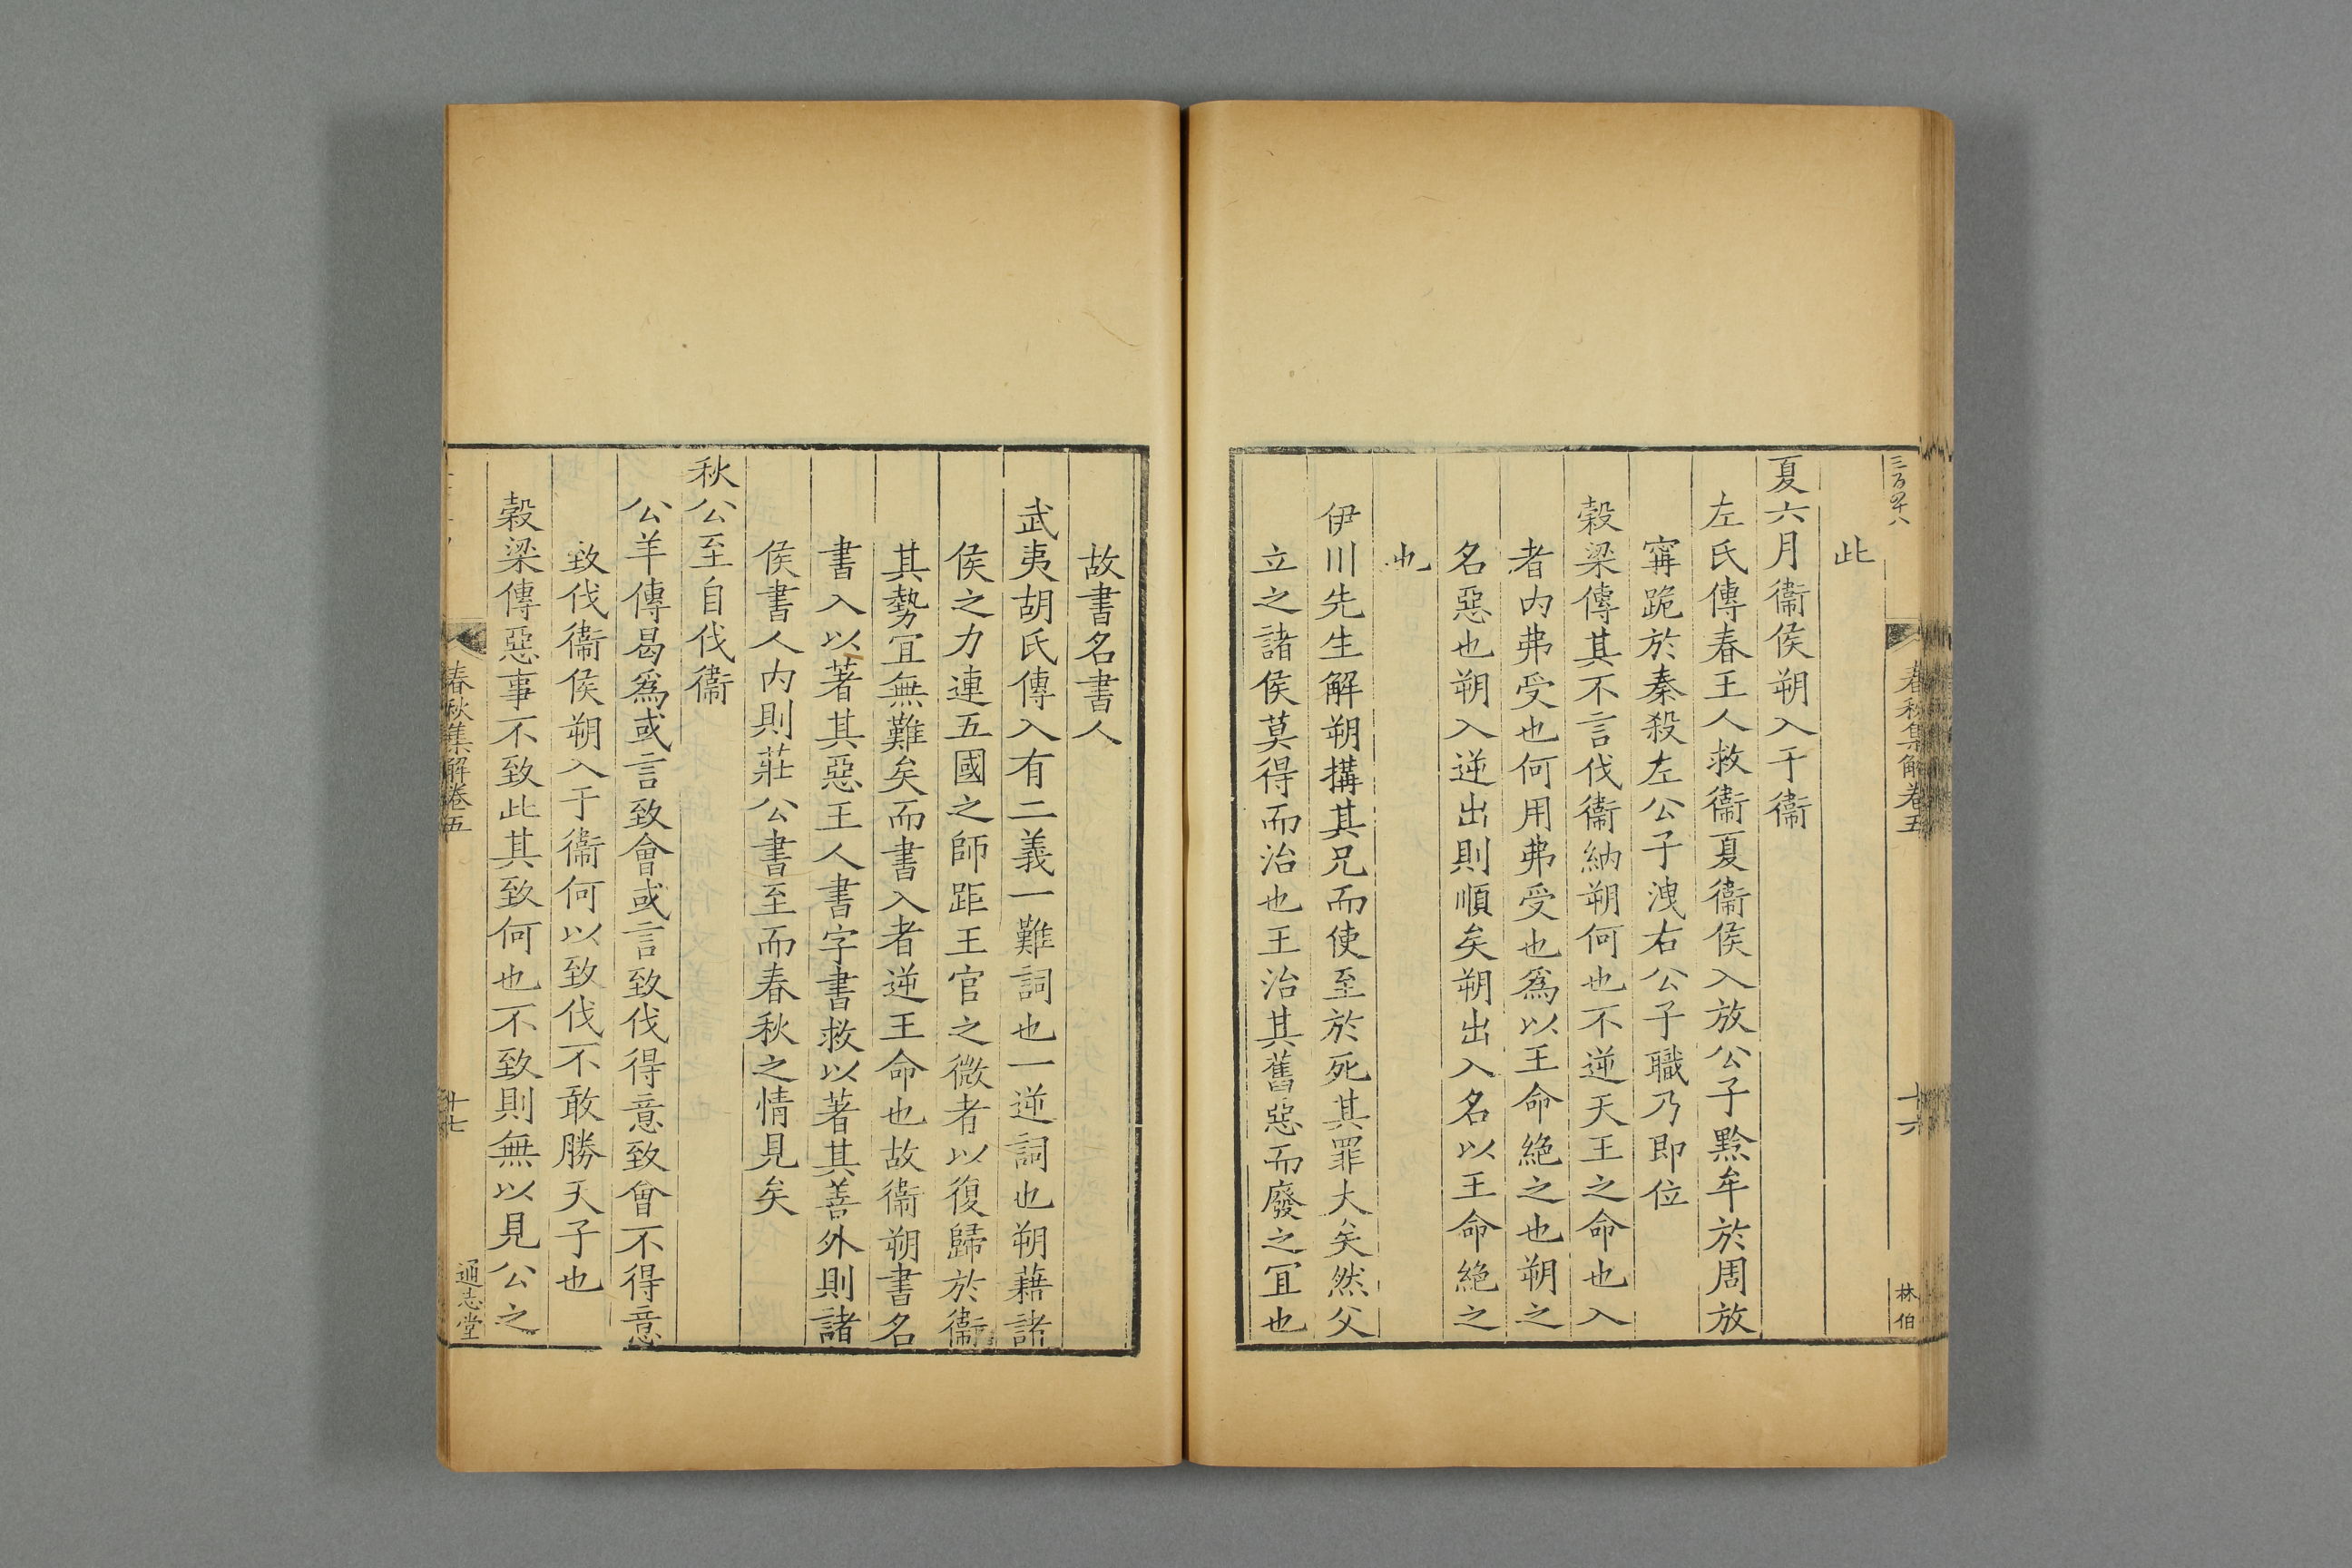 三百四十八
春秋集解卷五
十六
林伯
此
夏六月衞侯朔入于衞
左氏傳春王人救衞夏衞侯入放公子黔牟於周放
甯跪於秦殺左公子洩右公子職乃即位
穀梁傳其不言伐衞納朔何也不逆天王之命也入
者内弗受也何用弗受也爲以王命絶之也朔之
名惡也朔入逆出則順矣朔出入名以王命絶之
也
伊川先生解朔搆其兄而使至於死其罪大矣然父
立之諸侯莫得而治也王治其舊惡而廢之宜也
故書名書人
武夷胡氏傳入有二義一難詞也一逆詞也朔藉諸
侯之力連五國之師距王官之微者以復歸於衞
其勢宜無難矣而書入者逆王命也故衞朔書名
書入以著其惡王人書字書救以著其善外則諸
侯書人内則莊公書至而春秋之情見矣
秋公至自伐衞
公羊傳曷爲或言致會或言致伐得意致會不得意
致伐衞侯朔入于衞何以致伐不敢勝天子也
穀梁傳惡事不致此其致何也不致則無以見公之
春秋集解卷五
十七
通志堂